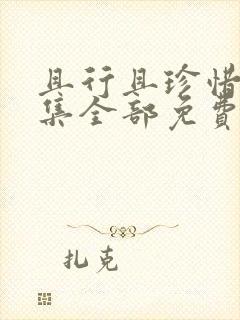 且行且珍惜
集全部免费
扎克